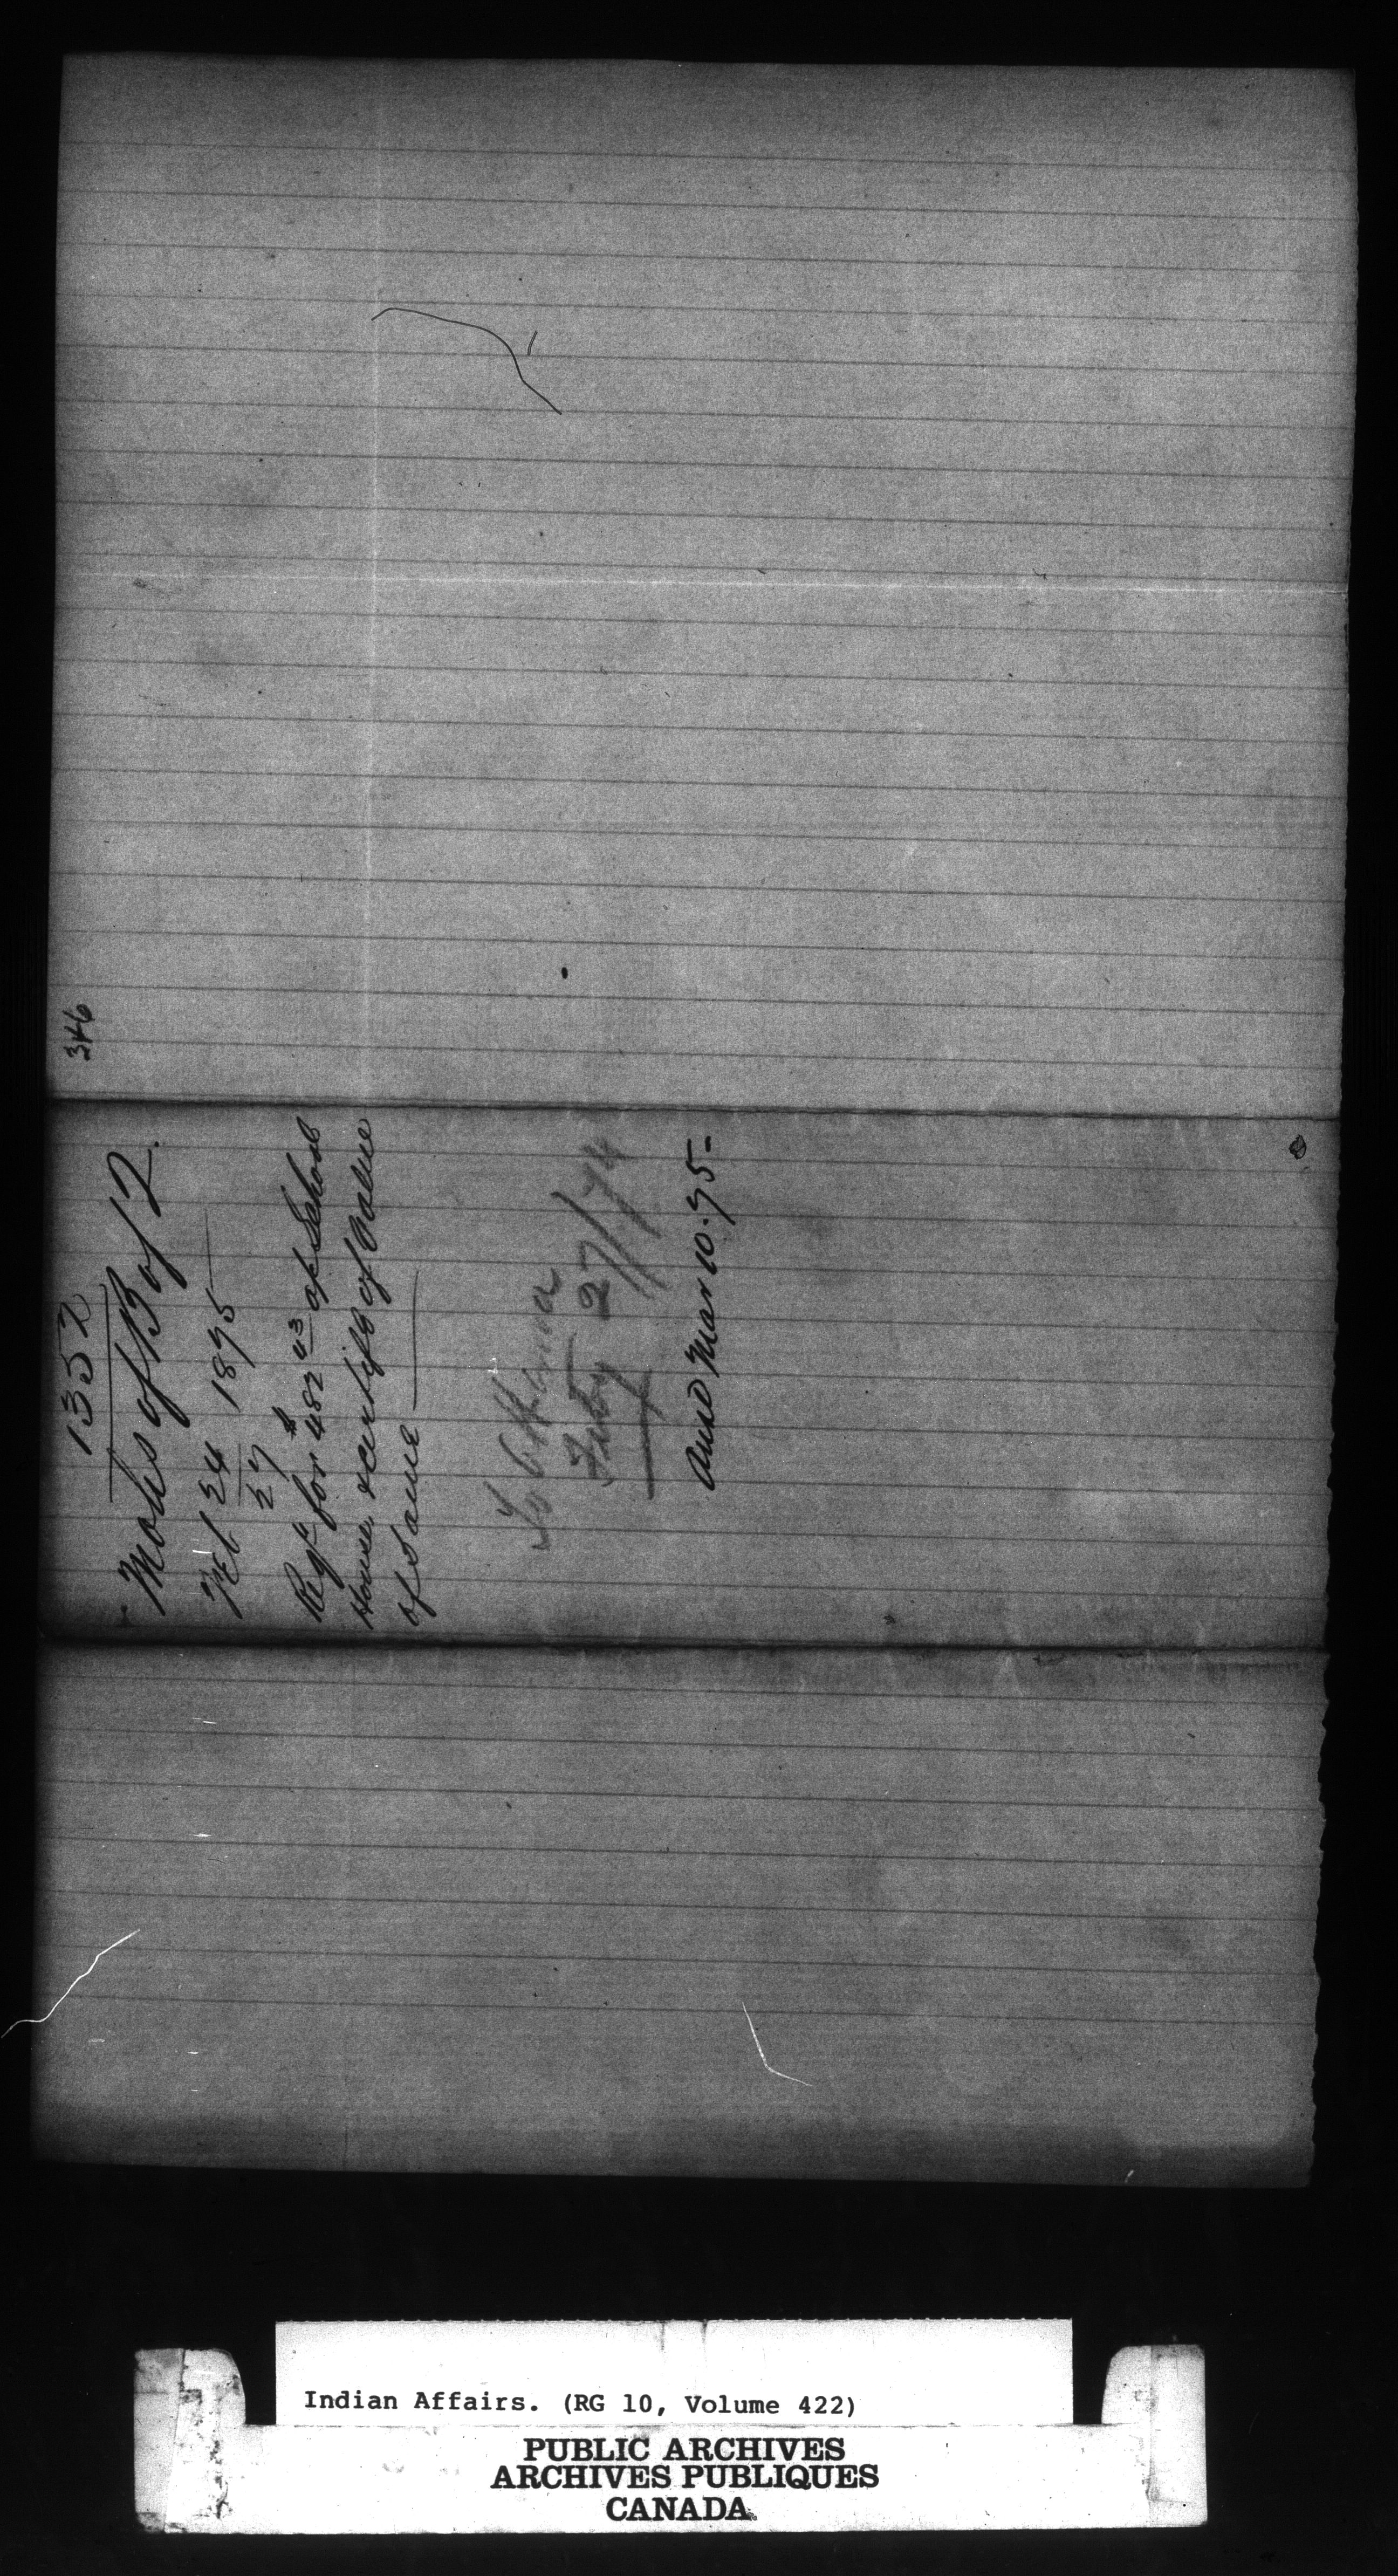 346
1352
Mohs of B of 2.
Feb 24 1875
27
Rqn for $482 43 ofs School
House, & certife of value
of Same
To Ottawa
Feby 27/74
Ansd Mar 10. 75-
Indian Affairs. (RG 10, Volume 422)
PUBLIC ARCHIVES
ARCHIVES PUBLIQUES
CANADA